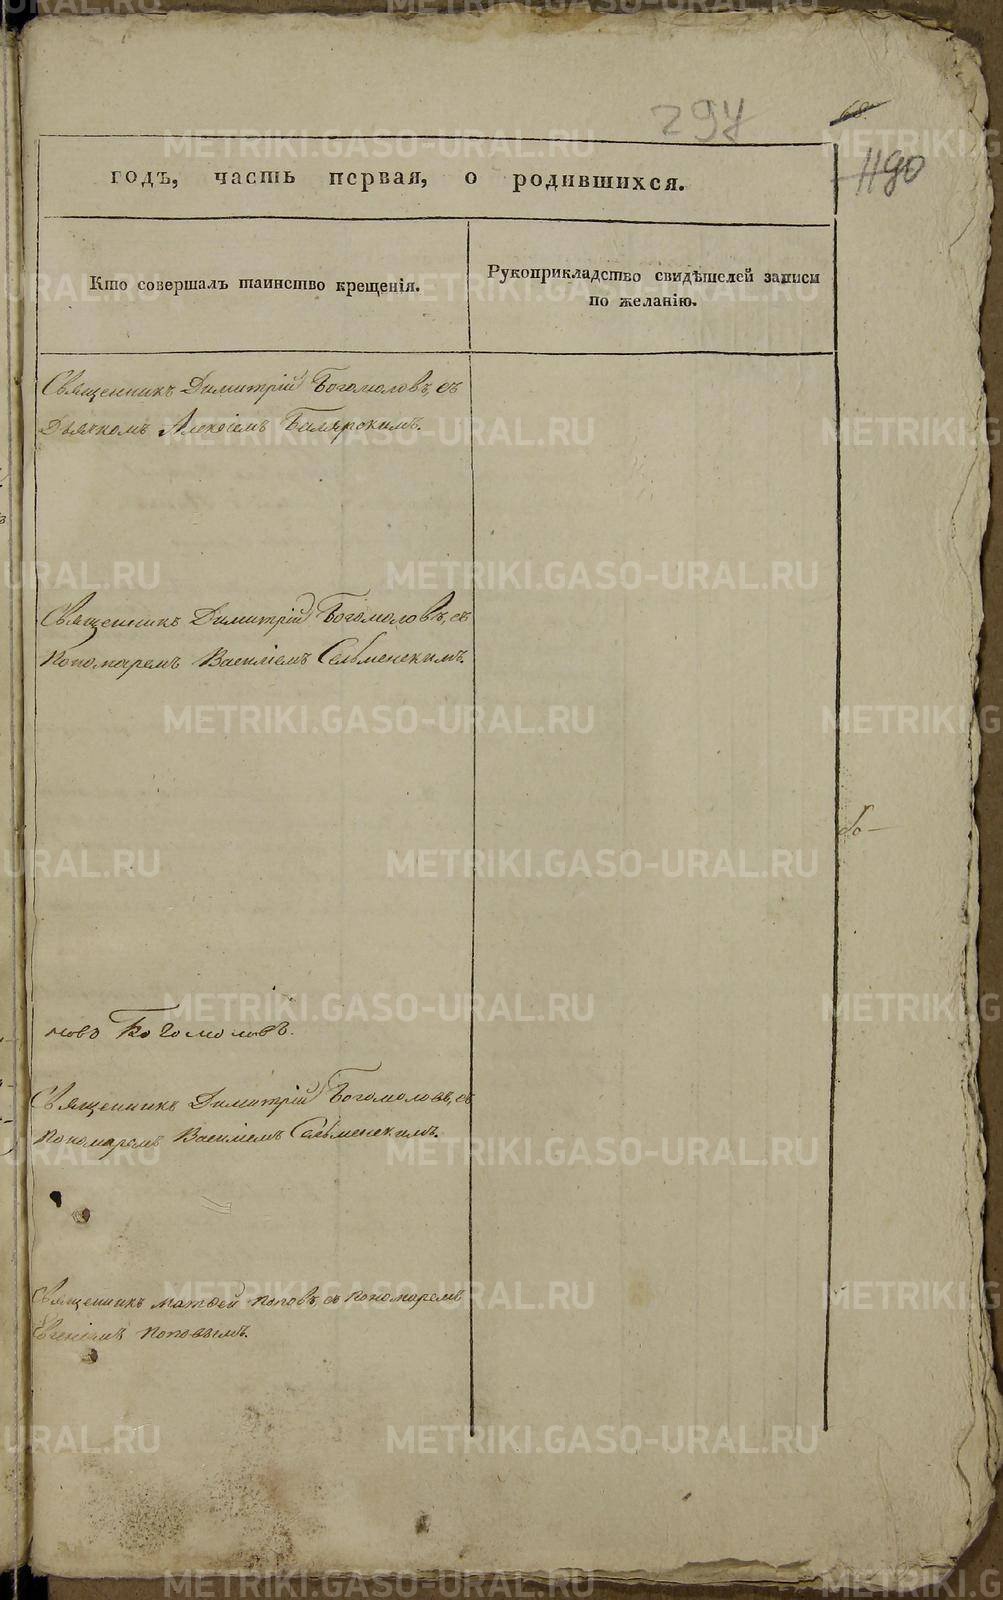 297
68.
1190
годъ, часть первая, о родившихся.
Кто совершалъ таинство крещенія.
Рукоприкладство свидѣтелей записи
по желанію.
Священникъ Димитрій Богомоловъ, съ
Дьячкомъ Алексіемъ Билярскимъ.
Священникъ Димитрій Богомоловъ, съ
Пономаремъ Василіемъ Сельменскимъ.
Богомоловъ.
Священникъ Димитрій Богомоловъ, съ
Пономаремъ Василіемъ Сельменскимъ.
Священникъ Матфей Поповъ, съ Пономаремъ
Евгеніемъ Поповымъ.
METRIKI.GASO-URAL.RU